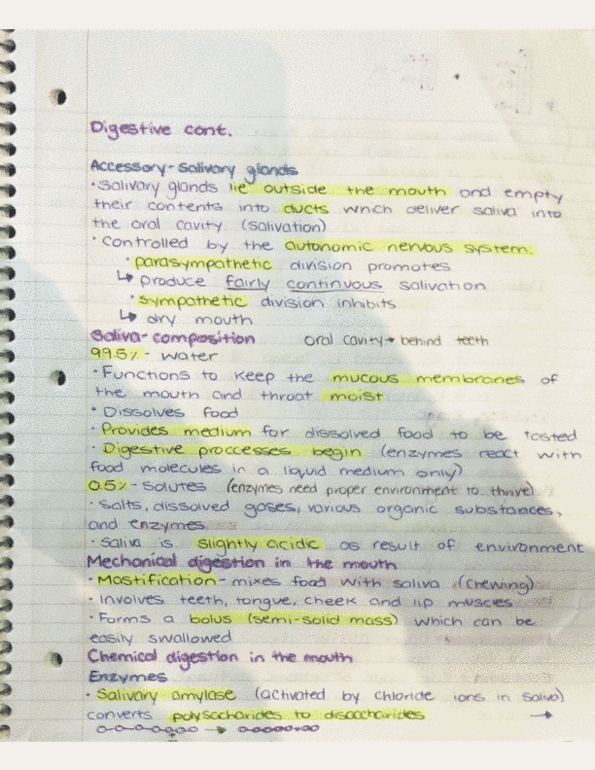 Digestive cont.
Accessory-Salivary glands
• Salivary glands lie outside the mouth and empty
their contents into ducts which deliver saliva into
the oral cavity (salivation)
• Controlled by the autonomic nervous system.
• parasympathetic division promotes
↳ produce fairly continuous salivation
• sympathetic division inhibits
↳ dry mouth
Saliva-composition oral cavity→ behind teeth
99.5% - water
• Functions to keep the mucous membranes of
the mouth and throat moist
• Dissolves food
• Provides medium for dissolved food to be tasted
• Digestive proccesses begin (enzymes react with
food molecules in a liquid medium only)
0.5% - solutes (enzymes need proper environment to thrive)
• Salts, dissolved gases, various organic substances,
and enzymes
• Saliva is slightly acidic as result of environment
Mechanical digestion in the mouth
• Mastification - mixes food with saliva (chewing)
• Involves teeth, tongue, cheek and lip muscles
• Forms a bolus (semi-solid mass) which can be
easily swallowed
Chemical digestion in the mouth
Enzymes
• Salivary amylase (activated by chloride ions in saliva)
converts polysacharides to disaccharides →